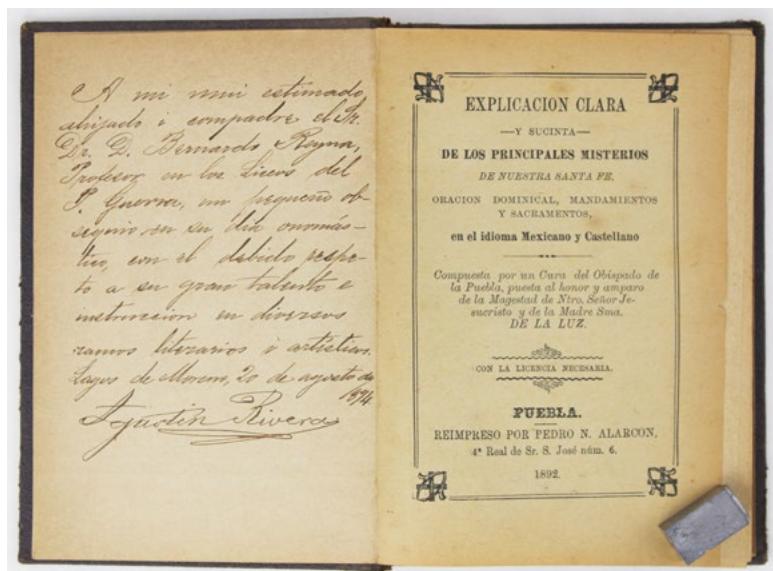 A mi mui estimado
ahijado i compadre el Sr.
Dr. D. Bernardo Reyna,
Profesor en los Liceos del
P. Guerra, un pequeño ob-
sequio en su dia onomás-
tico, con el debido respe-
to a su gran talento e
instruccion en diversos
ramos literarios i artísticos.
Lagos de Moreno, 20 de agosto de
1894
Agustin Rivera
EXPLICACION CLARA
—Y SUCINTA—
DE LOS PRINCIPALES MISTERIOS
DE NUESTRA SANTA FE,
ORACION DOMINICAL, MANDAMIENTOS
Y SACRAMENTOS,
en el idioma Mexicano y Castellano
Compuesta por un Cura del Obispado de
la Puebla, puesta al honor y amparo
de la Magestad de Ntro. Señor Je-
sucristo y de la Madre Sma.
DE LA LUZ.
CON LA LICENCIA NECESARIA.
PUEBLA.
REIMPRESO POR PEDRO N. ALARCON,
4ª Real de Sr. S. José núm. 6.
1892.